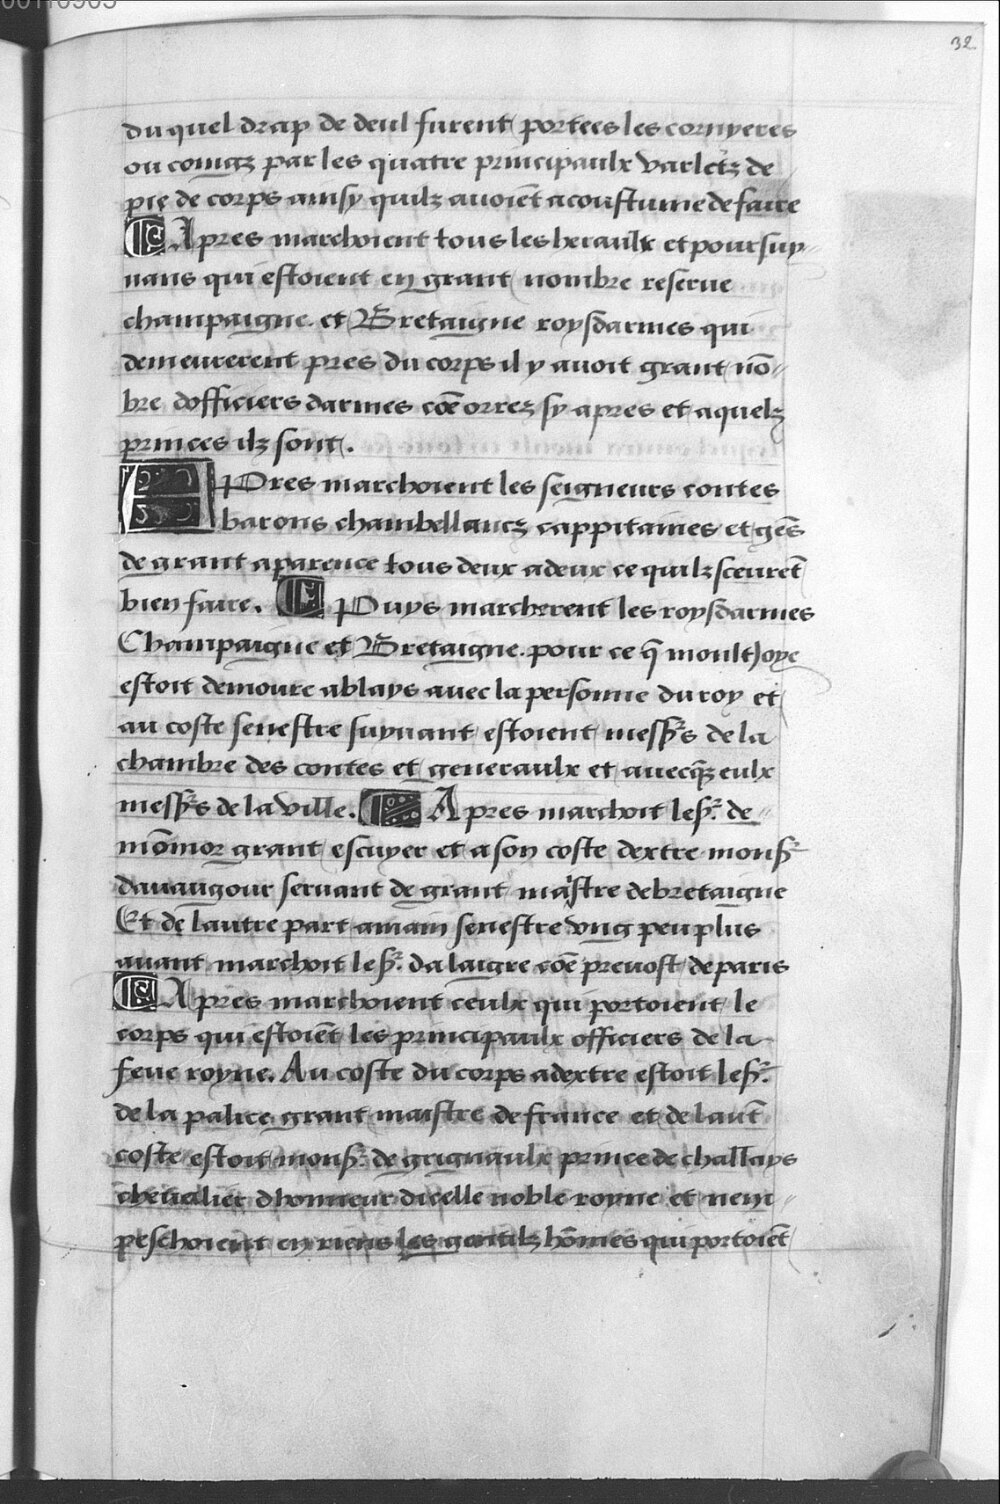 32
du quel drap de deul furent portees les cornyeres
ou coingz par les quatre principaulx varletz de
pie de corps ainsy quilz avoiēt acoustume de faire
Apres marchoient tous les heraulx et poursuy
vans qui estoient en grant nombre reserve
champaigne et Bretaigne roys darmes qui
demeurerent pres du corps il y avoit grant nō
bre dofficiers darmes cōe orrez sy apres et a quelz
princes ilz sont.
APres marchoient les seigneurs contes
barons chambellancz cappitaines et gēs
de grant aparence tous deux a deux ce quilz sceurēt
bien faire. Puys marcherent les roys darmes
Champaigne et Bretaigne. pour ce q̄ moult Joye
estoit demoure a blays avec la personne du roy et
au coste senestre suyvant estoient messrs de la
chambre des contes et generaulx et avecqz eulx
messrs de la ville. Apres marchoit le sr. de
mōmor grant escuyer et a son coste dextre monsr
davaugour servant de grant maistre de bretaigne
Et de lautre part a main senestre ung peu plus
avant marchoit le sr. dalaigre cōe prevost de paris
Apres marchoient ceulx qui portoient le
corps qui estoiēt les principaulx officiers de la
feue royne. Au coste du corps a dextre estoit le sr.
de la palice grant maistre de france et de laut̄
coste estoit monsr. de grignaulx prince de challays
chevalier dhonneur dicelle noble royne et nem
peschoient en riens les gentilz hōmes qui portoiēt